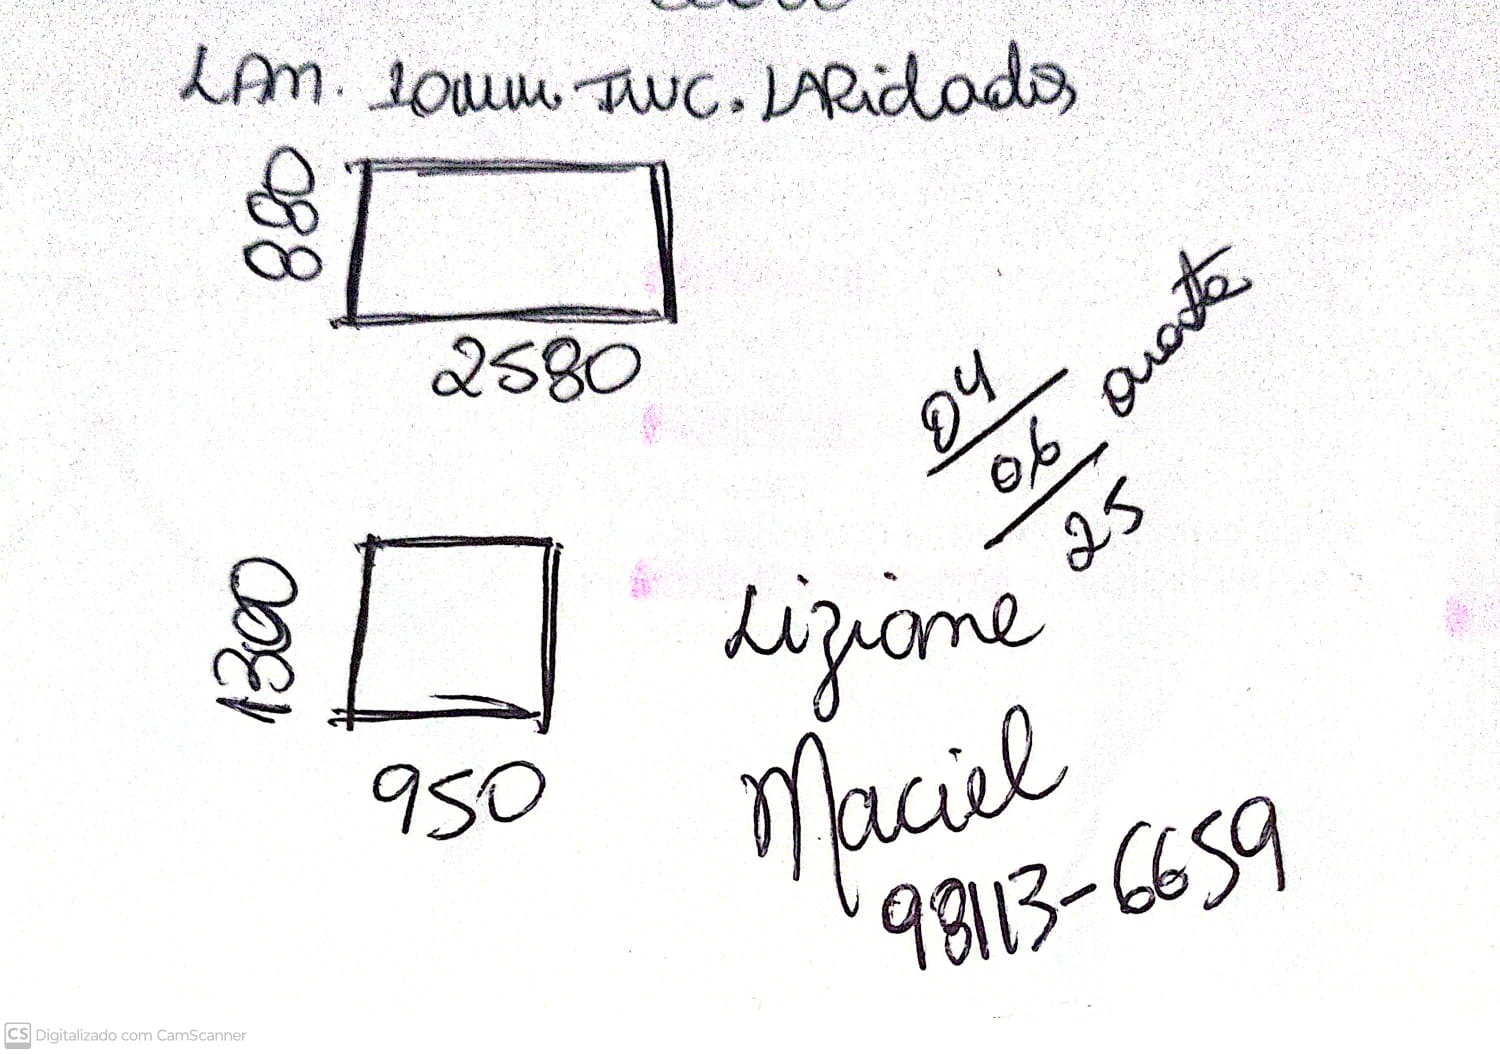 LAM. 10mm. INC. LAPidados
880
2580
04/06/25
1300
950
Liziane
Maciel
98113-6659
CS Digitalizado com CamScanner